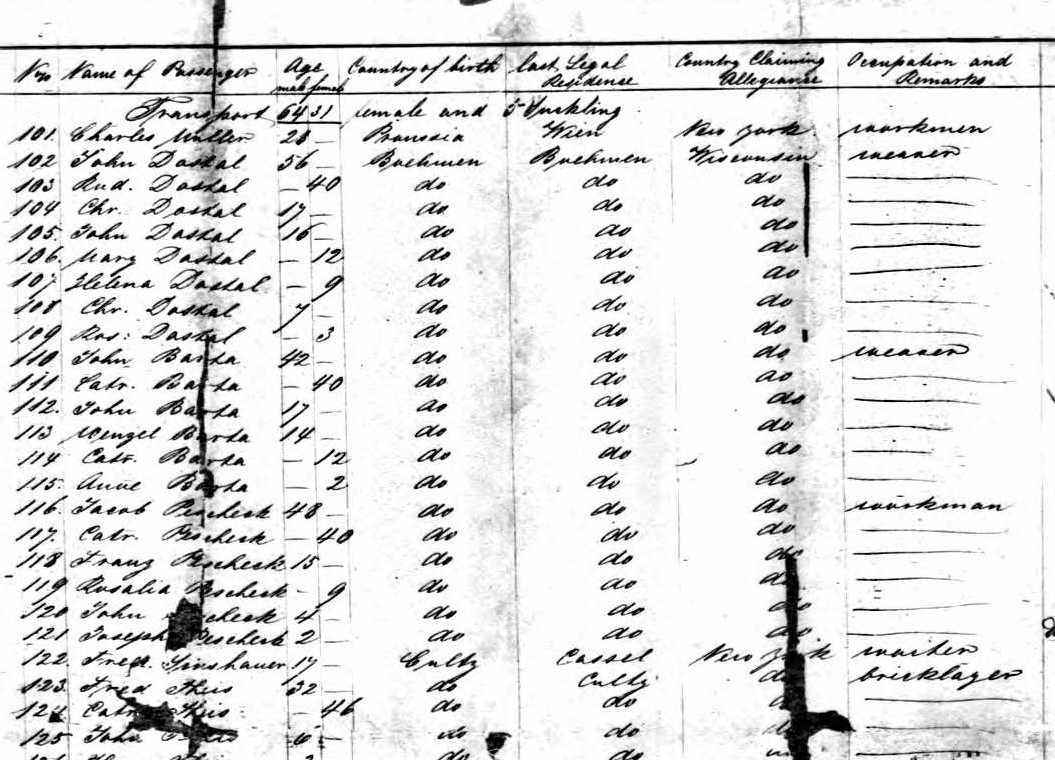 Nro Name of Passenger Age Country of birth last Legal Country Claiming Occupation and
male female Residence Allegiance Remarks
Transport 64 31 female and 5 Suckling
101. Charles Müller 28 — Prussia Wien New York workmen
102 John Dostal 56 — Boehmen Boehmen Wisconsin weaver
103 Dostal — 40 do do do
104 Chr. Dostal 17 — do do do
105. John Dostal 16 — do do do
106. Mary Dostal — 12 do do do
107 Helena Dostal — 9 do do do
108 Chr. Dostal 7 — do do do
109 Ros: Dostal — 3 do do do
110 John Barta 42 — do do do weaver
111 Catr. Barta — 40 do do do
112. John Barta 17 — do do do
113 Wenzel Barta 14 — do do do
114 Catr. Barta — 12 do do do
115. Anne Barta — 2 do do do
116. Jacob Pescheck 48 — do do do workman
117. Catr. Pescheck — 40 do do do
118 Franz Pescheck 15 — do do do
119 Rosalia Pescheck — 9 do do do
120 John 4 — do do do
121 Joseph Pescheck 2 — do do do
122 Fred. 17 — Cassel New York
123. Fred Theis 32 — do do bricklayer
124 Catr. Theis — 46 do do
125 John 6 — do do
do do